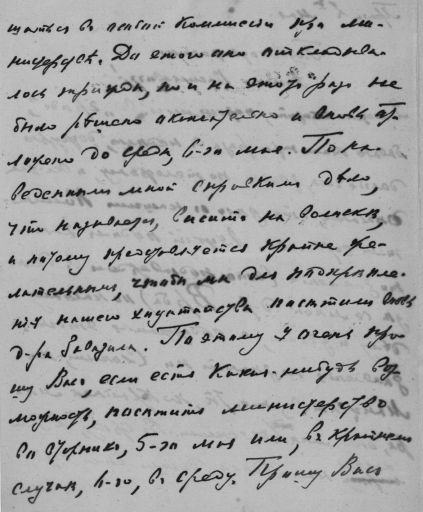 шаться въ особой Коммиссіи при ми-
нистерствѣ. До этого оно откладыва-
лось трижды, но и на этотъ разъ не
было рѣшено окончательно и вновь от-
ложено до среды, 6-го мая. По на-
веденнымъ мной справкамъ дѣло,
что называется, виситъ на волоскѣ,
а потому представляется крайне же-
лательнымъ, чтобы мы для подкрѣпле-
нія нашего ходатайства посѣтили вновь
д-ра
Поэтому я очень про-
шу Васъ, если есть какая-нибудь воз-
можность, посѣтить министерство
во вторникъ, 5-го мая или, въ крайнемъ
случаѣ, 6-го, въ среду. Прошу Васъ